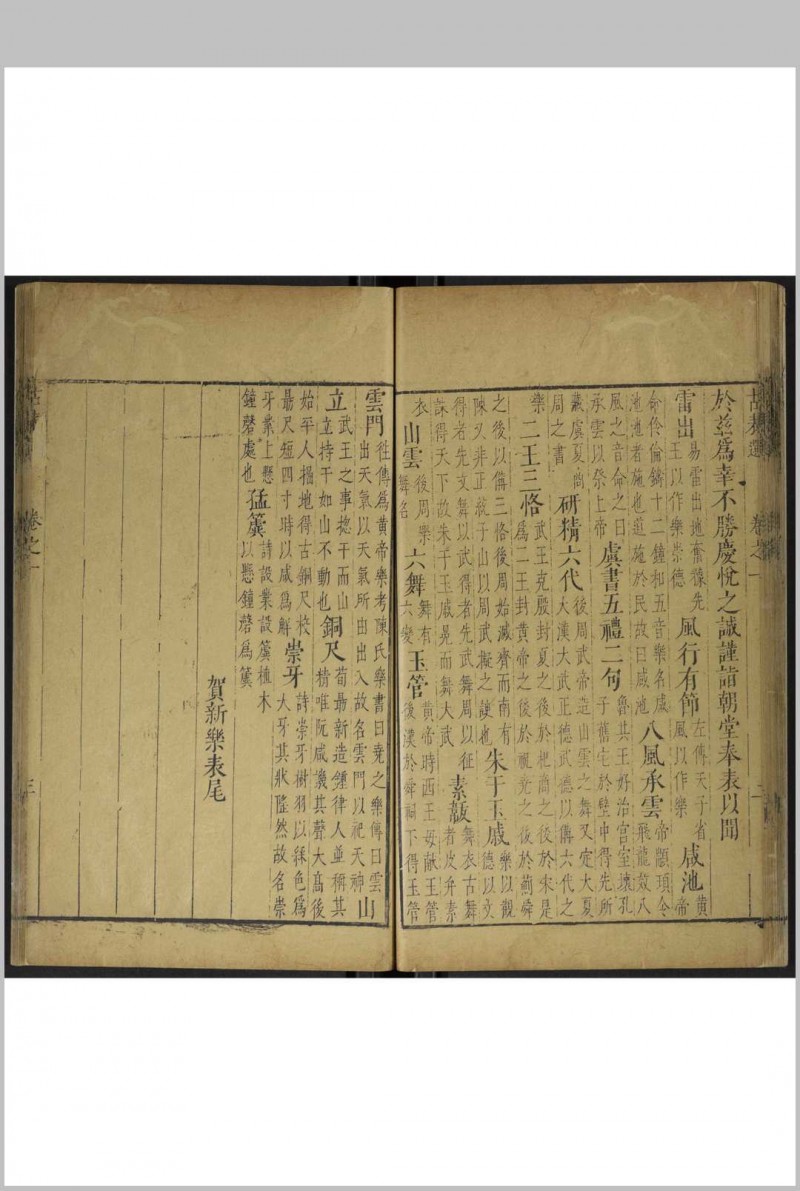 於茲為幸不勝慶悅之誠謹詣朝堂奉表以聞
雷出 易雷出地奮豫先王以作樂崇德 風行有節 左傳天子省風以作樂 咸池 黃帝
命伶倫鑄十二鐘和五音樂名咸池池者施也道施於民故曰咸池 八風承雲 帝顓頊令飛龍效八
風之音命之曰承雲以祭上帝 虞書五禮二句 魯共王好治宮室壞孔子舊宅於壁中得先所
藏虞夏尚周之書 研精六代 後周武帝造山雲之舞又定大夏大濩大武正德武德以備六代之
樂 二王三恪 武王克殷封夏之後於杞商之後於宋是為二王封黃帝之後於祝堯之後於薊舜
之後以備三恪後周始滅齊而南有陳又非正統于山以周武擬之諛也 朱干玉戚 樂以觀德以文
得者先文舞以武得者先武舞周以征誅得天下故朱干玉戚冕而舞大武 素韍 舞衣古舞者皮弁素
衣 山雲 後周樂舞名 六舞 舞有六變 玉管 黃帝時西王母獻玉管後漢於舜祠下得玉管
雲門 往傳為黃帝樂考陳氏樂書曰堯之樂傳曰雲出天氣以天氣所由出入故名雲門以祀天神 山
立 武王之事揔干而山立立持干如山不動也 銅尺 荀朂新造鍾律人並稱其精唯阮咸譏其聲大高後
始平人掘地得古銅尺校朂尺短四寸時以咸為解 崇牙 詩崇牙樹羽以採色為大牙其狀隆然故名崇
牙業上懸鐘磬處也 猛簴 詩設業設簴植木以懸鐘磬為簴
賀新樂表尾
卷之一
二
卷之一
三